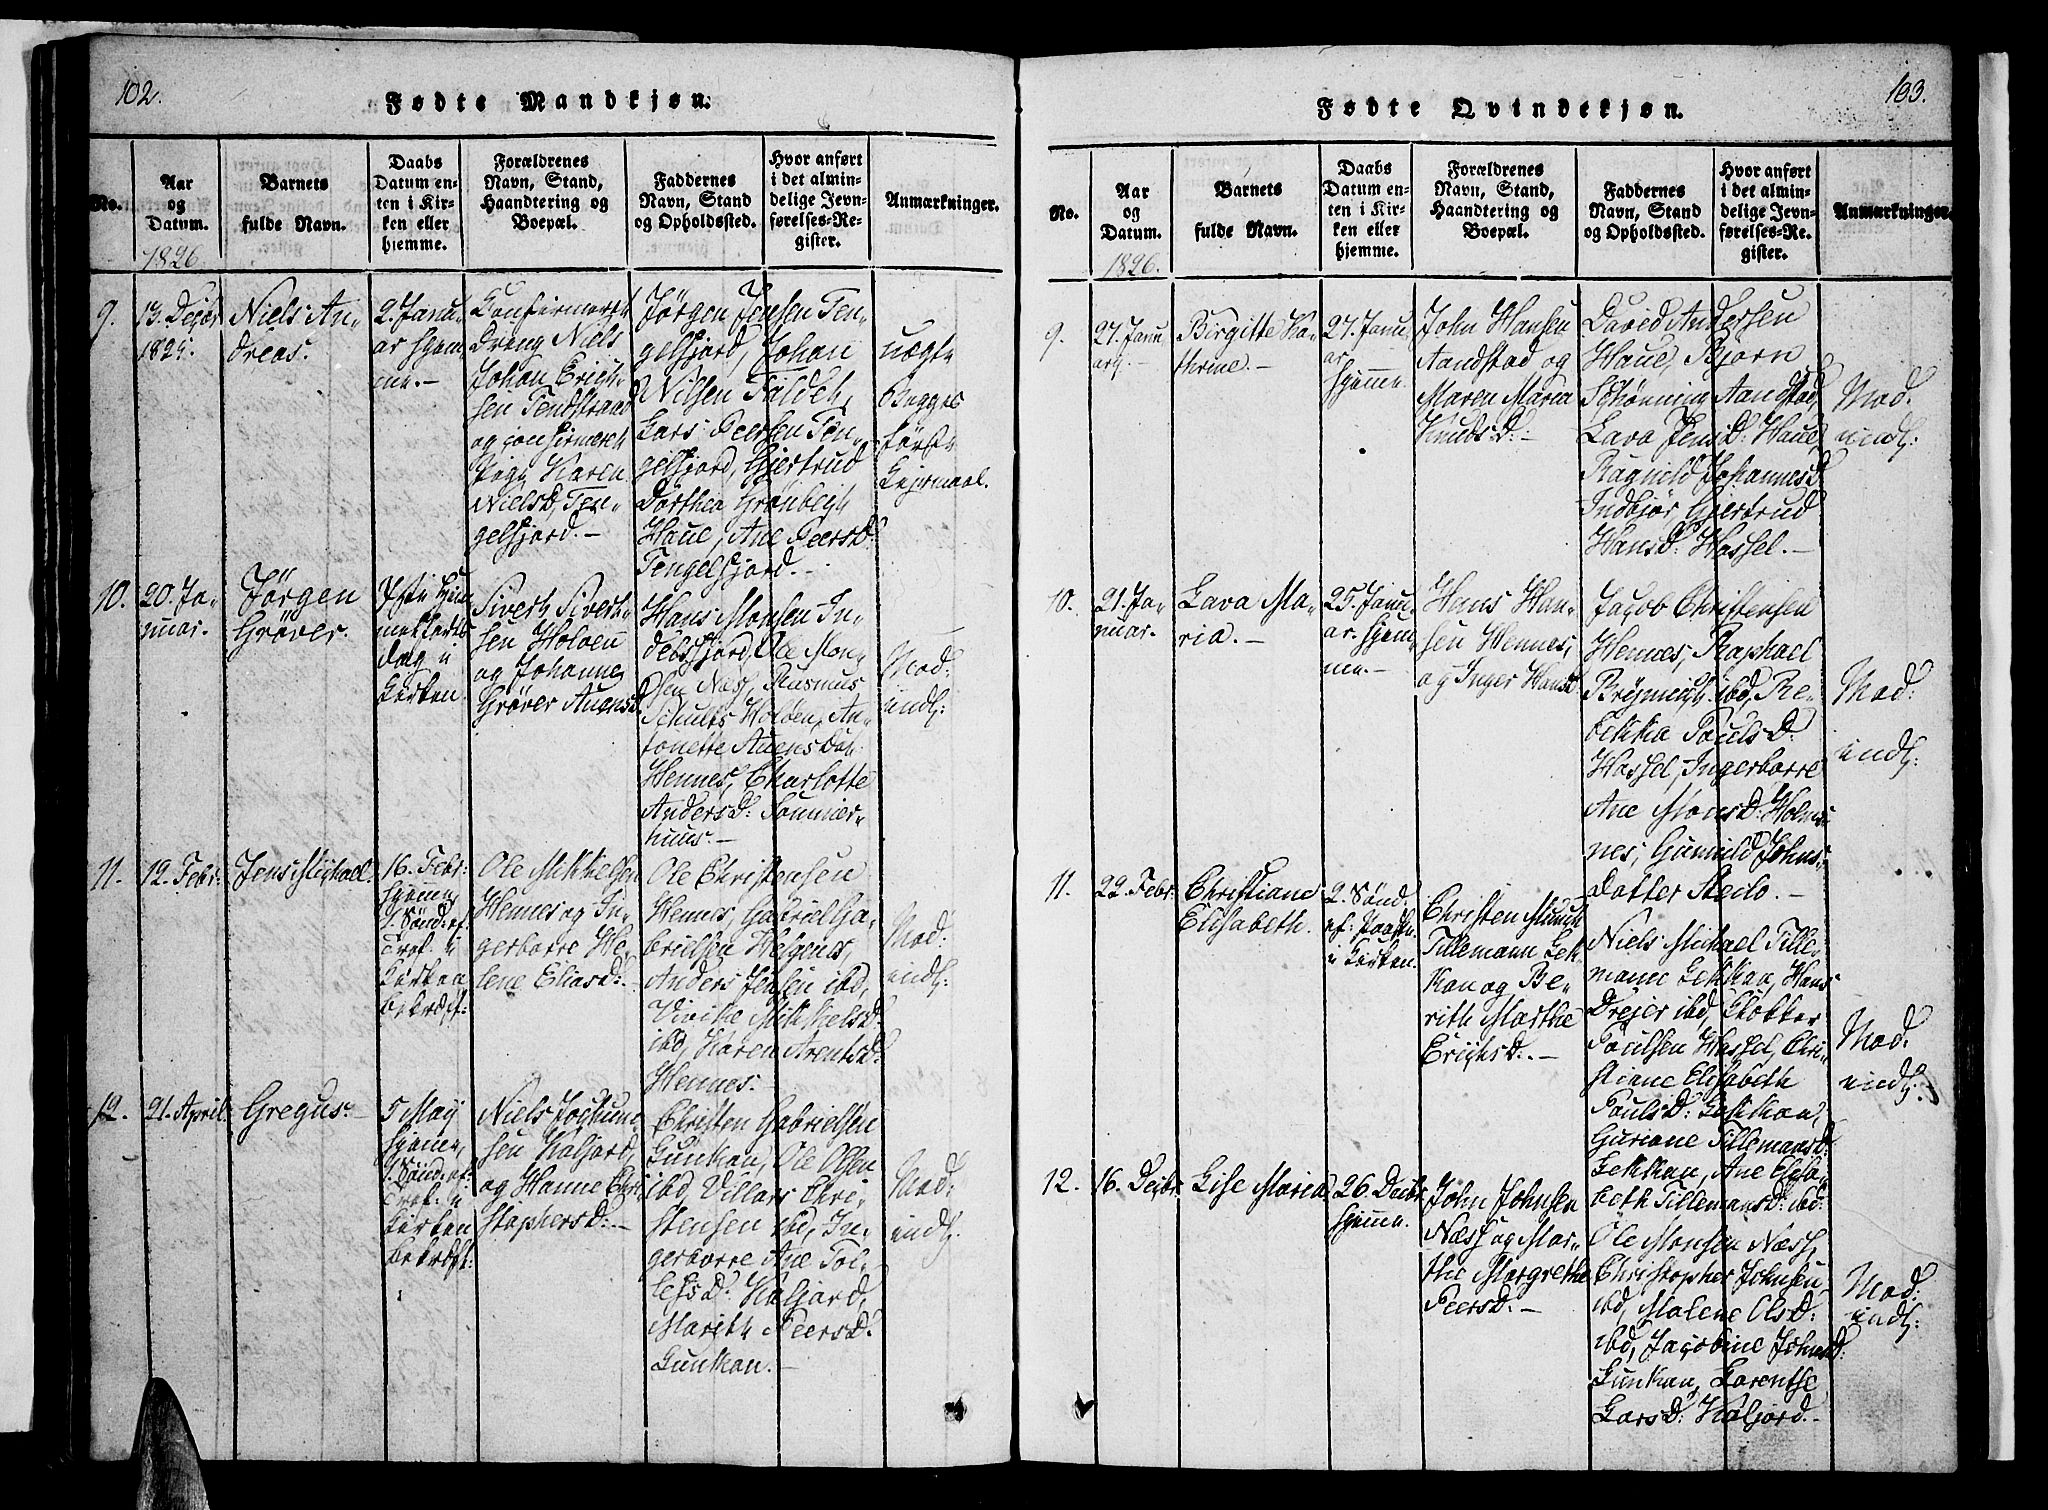 102.
Fødte Mandkjøn.
No.
Aar
og
Datum.
1826.
Barnets
fulde Navn.
Daabs
Datum en-
ten i Kir-
ken eller
hjemme.
Forældrenes
Navn, Stand,
Haandtering og
Boepæl.
Faddernes
Navn, Stand
og Opholdssted.
Hvor anført
i det almin-
delige Jevn-
førelses-Re-
gister.
Anmærkninger.
9.
13. Decbr
1825.
Niels An-
dreas.
2. Janu-
ar hjem-
me.-
Confirmereth
Dreng Niels
Johan Erich-
sen Tendstraad
og confirmereth
Pige Karen
NielsD. Ten-
gelfjord.-
Jørgen Jensen Ten-
gelfjord, Johan
Nilsen
Lars Peersen Ten-
gelfjord, Gjertrud
Dorthea Grønbeck
Haue, Ane PeersD:
Tengelfjord.-
uægte
Begges
første
Lejrmaal.
10.
20. Ja-
nuar.
Jørgen
Grøver.
dag i
Kirken.
Siverth Siverth-
sen Holoen
og Johanna
Grøver AuensD.
Hans Monsen In-
delsfjord, Ole Mon-
sen Næss, Rasmus
Schults Holoen, An-
tonette AuensDat:
Hennes, Charlotte
AndersD: Sommer-
huus.-
Mod:
indl:
11.
12. Febr:
Jens Michael.
16. Febr:
hjemme,
1. Sønd: ef:
Kirken
bekræft:
Ole Mikkelsen
Hennes og In-
gerborre He-
lene EliasD:-
Ole Christensen
Hennes, Gabriel Ga-
brielsen Helgenes,
Anders Jensen ibd,
Vivike MikkelsD:
ibd, Karen ArentsD:
Hennes.
Mod:
indl:
12.
21. April
Gregus.-
5 Maij
hjemme,
1. Sønd: ef:
Kirken
bekræft:
Niels Jochum-
sen Kaljord,
og Hanne Chri-
stophersD:-
Christen Gabrielsen
Gunkan, Ole Olsen
ibd, Villars Chri-
stensen ibd, In-
gerborre Ane Tol-
lefsD: Kaljord,
Marith PeersD:
Gunkan.-
Mod:
indl:
103.
Fødte Qvindekjøn.
No.
Aar
og
Datum.
1826.
Barnets
fulde Navn.
Daabs
Datum en-
ten i Kir-
ken eller
hjemme.
Forældrenes
Navn, Stand,
Haandtering og
Boepæl.
Faddernes
Navn, Stand
og Opholdssted.
Hvor anført
i det almin-
delige Jevn-
førelses-Re-
gister.
Anmærkninger.
9.
27. Janu-
ary.-
Birgitte Ka-
thrine.-
27. Janu-
ar
hjemme.
John Hansen
Aandstad og
Maren Maria
KnudsD:-
David Andersen
Haue, Bjørn
Schønning Aandstad,
Lava JensD: Haue,
Ragnild JohannesD
Indbjør Gjertrud
HansD: Hassel.-
Mod.
indl:
10.
21. Ja-
nuar.
Lava Ma-
ria.-
25. Janu-
ar hjem-
me.-
Hans Han-
sen Hennes,
og Inger HansD
Jacob Christensen
Hennes, Raphael
ibd, Re-
bekka PoulsD:
Hassel, Ingerborre
Ane MonsD: Holms-
nes, Gunnild Johns-
datter Stedo.-
Mod:
indl:
11.
22. Febr:
Christiane
Elisabeth.
2. Sønd:
ef: Paaske
i Kirken.
Christen Munch
Tillemann Lek-
kan og Be-
rith Marthe
ErichsD:-
Niels Michael Tille-
mann Lekkan, Hans
Drejer ibd, Stokker
Poulsen Hassel, Chri-
stiane Elisabeth
PaulsD: Lekkan,
Guriane TillemansD:
Lekkan, Ane Elisa-
beth TillemansD: ibd:
Mod:
indl:
12.
16. Decbr
Lise Maria
26. Decbr
hjemme.
John Johnsen
Næss og Mar-
the Margrethe
PeersD:-
Ole Monsen Næss,
Christopher Johnsen
ibd, Malene OlsD:
ibd, Jacobine JohnsD:
Gunkan, Lorentse
LarsD: Kaljord.-
Mod:
indl: